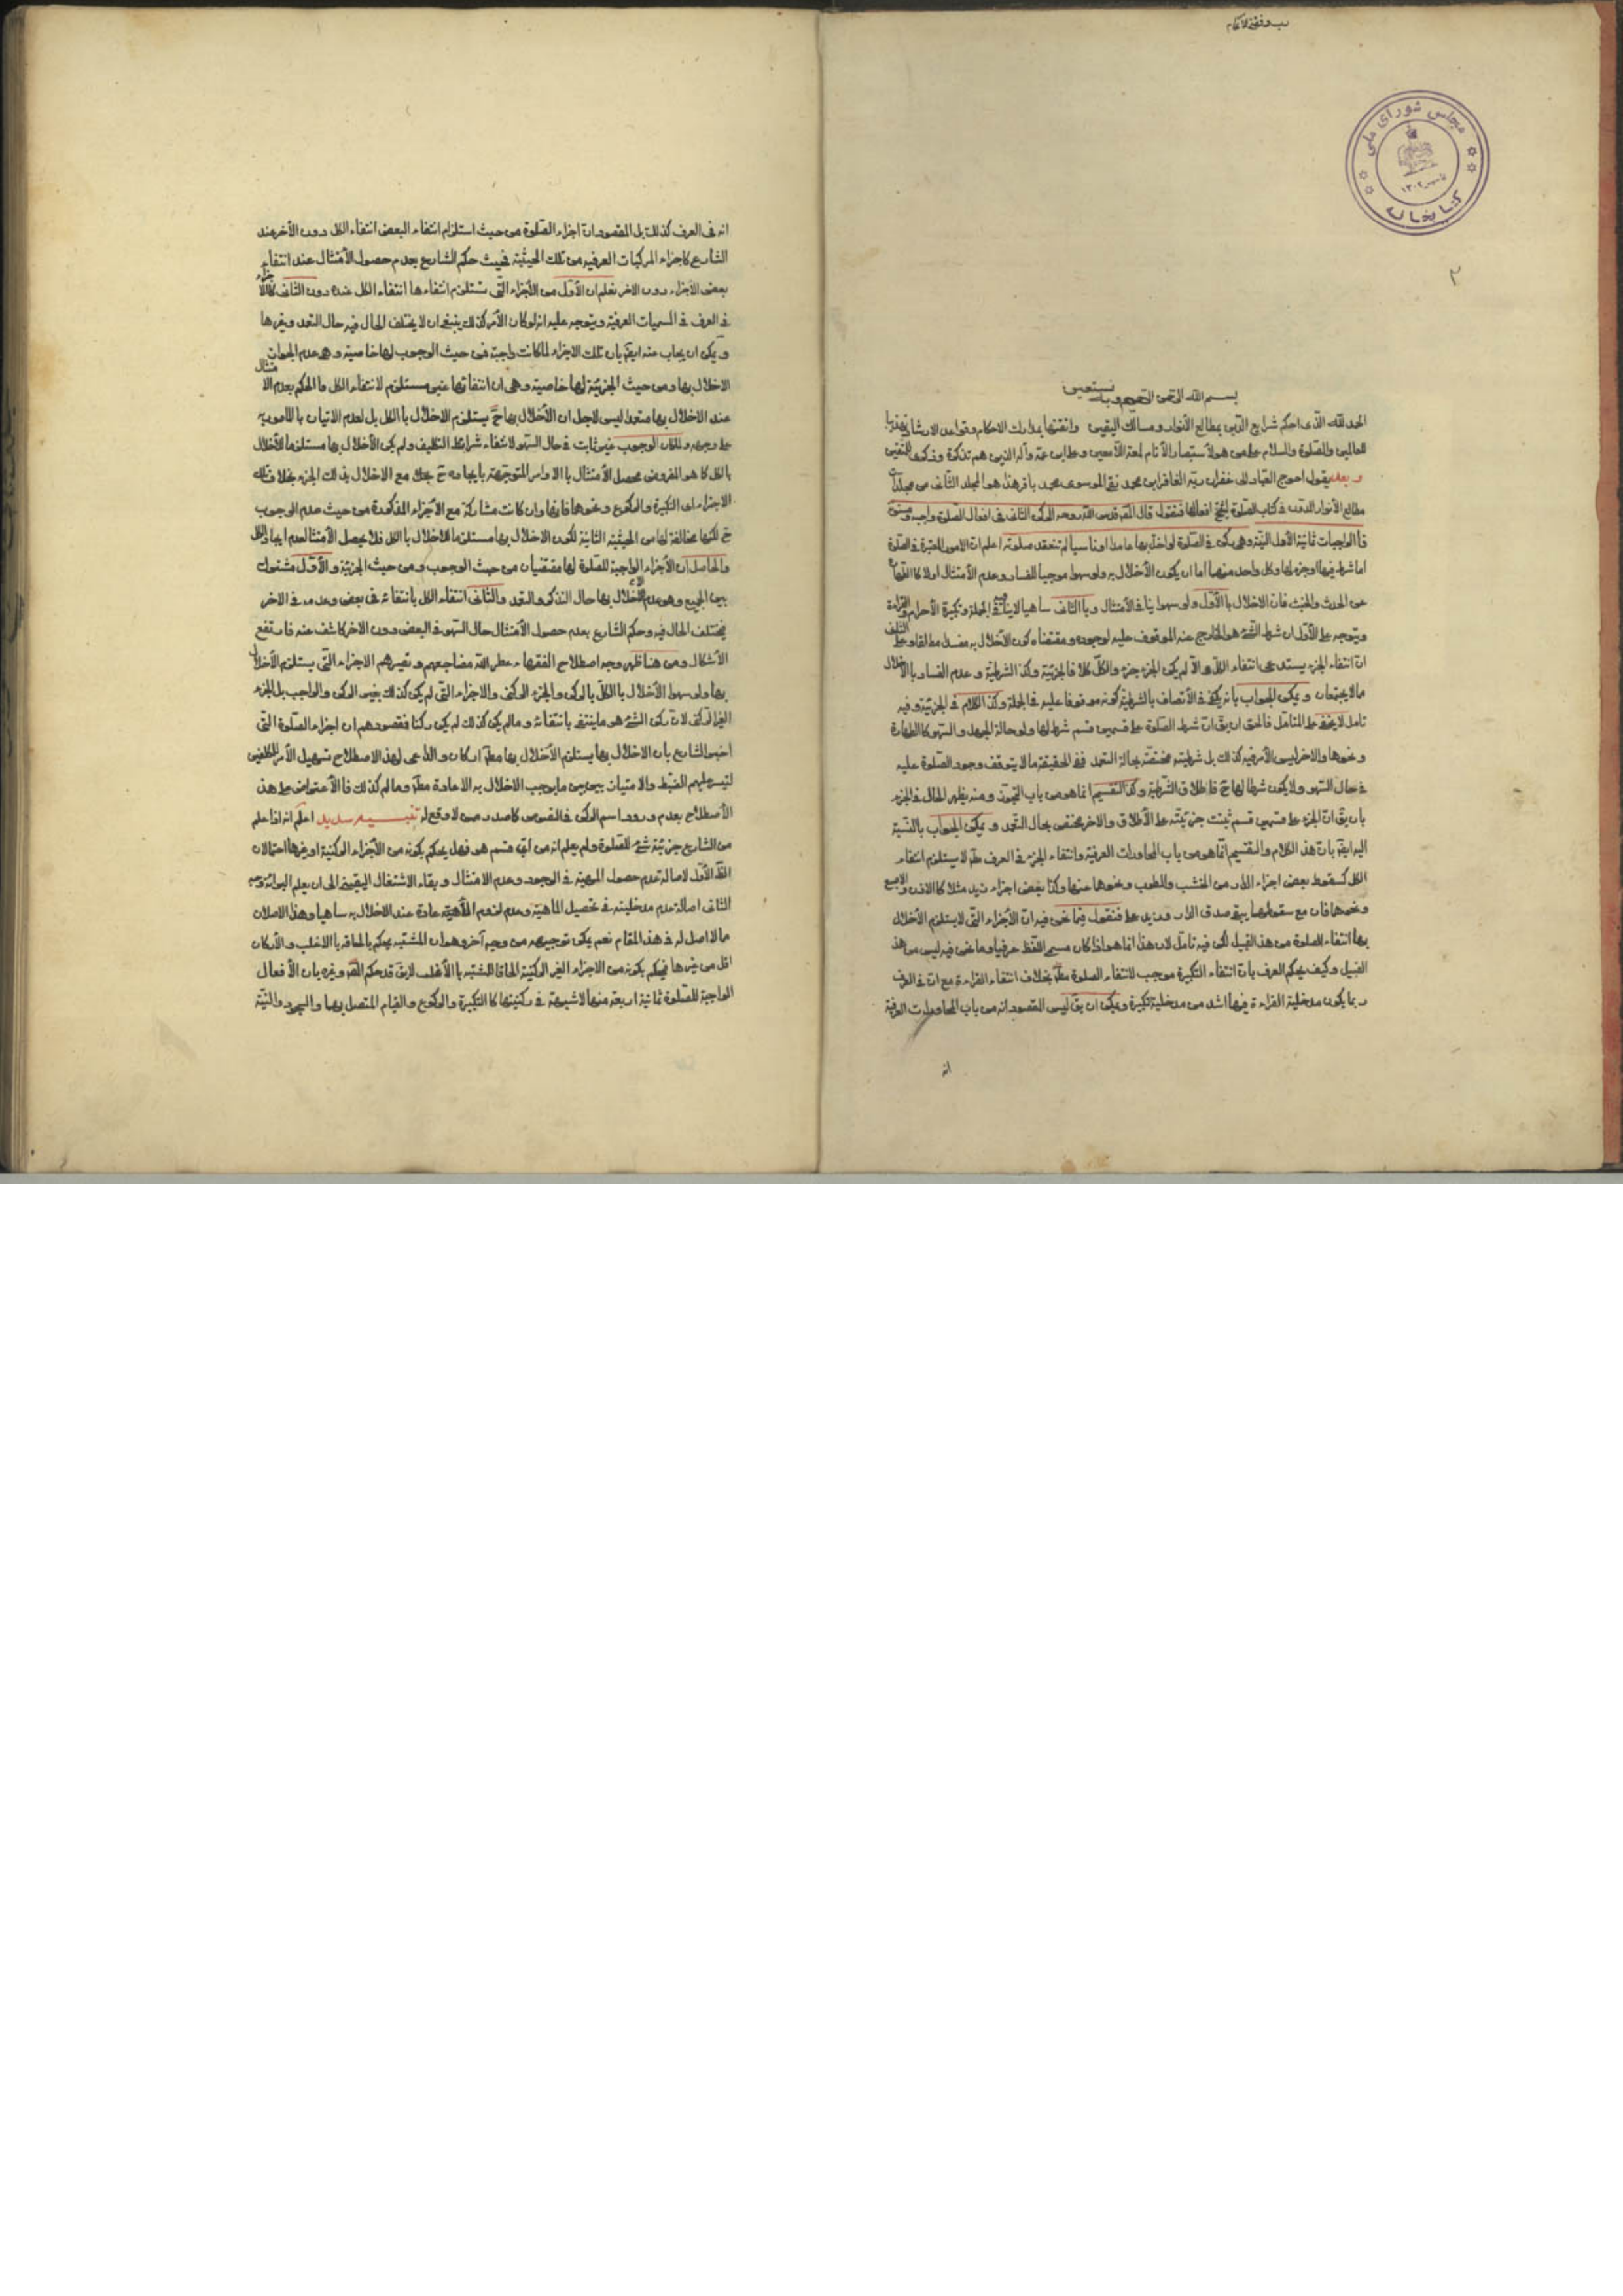 مجلس شورای ملی
کتابخانه
۲
بسم الله الرحمن الرحیم وبه نستعین
الحمد لله الذی احکم شرایع الدین بمطالع الانوار ومسالک الیقین واتقنها بمدارک الاحکام وقواعد الارشاد
للعالمین والصلوة والسلام علی من هو لاستبصار الانام لمعة اللامعین وعلی ابن عمه وآله الذین هم تذکرة وذکری للمتقین
و بعد یقول احوج العباد الی غفران ربه الغافر ابن محمد نقی الموسوی محمد باقر هذا هو المجلد الثانی من مجلدات
مطالع الانوار فی کتاب الصلوة افعالها فنقول قال المصـ قدس الله روحه الرکن الثانی فی افعال الصلوة واجبة ومسنونة
فالواجبات ثمانیة الاول النیة وهی رکن فی الصلوة لو اخل بها عامدا او ناسیا لم تنعقد صلوته اعلم ان الامور المعتبرة فی الصلوة
اما شرط فیها او جزء لها وکل واحد منهما اما ان یکون الاخلال به ولو سهوا موجبا للفساد وعدم الامتثال اولا کالطهارة
عن الحدث والخبث فان الاخلال بالاول ولو سهوا ینافی الامتثال وبالثانی ساهیا لا ینافیه فی الجملة وتکبیرة الاحرام والقراءة
ویتوجه علی الاول ان شرط الشئ هو الخارج عنه الموقوف علیه لوجوده ومقتضاه کون الاخلال به مفسدا مطلقا وعلی الثانی
ان انتفاء الجزء یستدعی انتفاء الکل والا لم یکن الجزء جزء والکل کلا فالجزئیة وکذا الشرطیة وعدم الفساد بالاخلال
مما لا یجتمعان ویمکن الجواب بانه یکفی فی الاتصاف بالشرطیة کونه موقوفا علیه فی الجملة وکذا الکلام فی الجزئیة وفیه
تامل لا یخفی علی المتامل فالحق ان یق ان شرط الصلوة علی قسمین قسم شرط لها ولو حالة الجهل والسهو کالطهارة
ونحوها والاخر لیس الامر فیه کذلک بل شرطیته مختصة بحالة التعمد ففی الحقیقة مما لا یتوقف وجود الصلوة علیه
فی حال السهو ولا یکون شرطا لها ح فاطلاق الشرطیة وکذا التقسیم انما هو من باب التجوز ومنه یظهر الحال فی الجزء
بان یق ان الجزء علی قسمین قسم ثبتت جزئیته علی الاطلاق والاخر مختص بحال التعمد ویمکن الجواب بالنسبة
الیه ایضا بان هذا الکلام والتقسیم انما هو من باب المحاورات العرفیة وانتفاء الجزء فی العرف مطـ لا یستلزم انتفاء
الکل کسقوط بعض اجزاء الدار من الخشب والطوب ونحوها عنها وکذا بعض اجزاء زید مثلا کالاذن والاصبع
ونحوها فان مع سقوطها یبقی صدق الدار وزید علی فنقول فیما نحن فیه ان الاجزاء التی لا یستلزم الاخلال
بها انتفاء الصلوة من هذا القبیل لکن فیه تامل لان هذا انما هو اذا کان مسمی اللفظ عرفیا وما نحن فیه لیس من هذا
القبیل وکیف یحکم العرف بان انتفاء التکبیرة موجب لانتفاء الصلوة مطـ بخلاف انتفاء القراءة مع ان فی العرف
ربما یکون مدخلیة القراءة فیها اشد من مدخلیة تکبیرة ویمکن ان یق لیس المقصود انه من باب المحاورات العرفیة
انه
انه فی العرف کذلک بل المقصود ان اجزاء الصلوة من حیث استلزام انتفاء البعض انتفاء الکل دون الاخر عند
الشارع کاجزاء المرکبات العرفیة من تلک الحیثیة فحیث حکم الشارع بعدم حصول الامتثال عند انتفاء
بعض الاجزاء دون الاخر نعلم ان الاول من الاجزاء التی تستلزم انتفاءها انتفاء الکل عنده دون الثانی کالاجزاء
فی العرف فی المسمیات العرفیة ویتوجه علیه انه لو کان الامر کذلک ینبغی ان لا یختلف الحال فیه حال التعمد وغیرها
ویمکن ان یجاب عنه ایضا بان تلک الاجزاء لما کانت واجبة فمن حیث الوجوب لها خاصیة وهی عدم الجواز
الاخلال بها ومن حیث الجزئیة لها خاصیة وهی ان انتفائها غیر مستلزم لانتفاء الکل فالحکم بعدم الامتثال
عند الاخلال بها متعمدا لیس لاجل ان الاخلال بها ح یستلزم الاخلال بالکل بل لعدم الاتیان بالمامور به
علی وجهه ولما کان الوجوب غیر ثابت فی حال السهو لانتفاء شرایط التکلیف ولم یکن الاخلال بها مستلزما للاخلال
بالکل کما هو المفروض یحصل الامتثال بالاوامر المتوجهة بایجاده ح مع الاخلال بذلک الجزء بخلاف تلک
الاجزاء ای التکبیرة والرکوع ونحوها فانها وان کانت مشارکة مع الاجزاء المذکورة من حیث عدم الوجوب
ح لکنها مخالفة لها من الحیثیة الثانیة لکون الاخلال بها مستلزما للاخلال بالکل فلا یحصل الامتثال لعدم ایجاد الکل
والحاصل ان الاجزاء الواجبة للصلوة لها مقتضیان من حیث الوجوب ومن حیث الجزئیة والاول مشترک
بین الجمیع وهو عدم الاخلال بها حال التذکر والتعمد والثانی انتفاء الکل بانتفائه فی بعض وعدمه فی الاخر
فیختلف الحال فیه وحکم الشارع بعدم حصول الامتثال حال السهو فی البعض دون الاخر کاشف عنه فارتفع
الاشکال ومن هنا ظهر وجه اصطلاح الفقهاء عطر الله مضاجعهم وتعبیرهم الاجزاء التی یستلزم الاخلال
بها ولو سهوا الاخلال بالکل بالرکن والجزء الرکنی والاجزاء التی لم یکن کذلک بغیر الرکن والواجب بل الجزء
الغیر الرکنی لان رکن الشئ هو ما ینتفی بانتفائه وما لم یکن کذلک لم یکن رکنا فمقصودهم ان اجزاء الصلوة التی
اخبر الشارع بان الاخلال بها یستلزم الاخلال بها مطـ ارکان والداعی لهذا الاصطلاح تسهیل الامر للمکلفین
لتیسر علیهم الضبط والامتیاز بین ما یوجب الاخلال به الاعادة مطـ وما لم کذلک فالاعتراض علی هذا
الاصطلاح بعدم ورود اسم الرکن فی النصوص کما صدر ممن لا وقع له اعلم انه اذا علم
من الشارع جزئیة شئ للصلوة ولم یعلم انه من ای قسم هو فهل یحکم بکونه من الاجزاء الرکنیة او غیرها احتمالان
الاول لاصالة عدم حصول المهیة فی الوجود وعدم الامتثال وبقاء الاشتغال الیقینی الی ان یعلم البرائة وجه
الثانی اصالة عدم مدخلیته فی تحصیل الماهیة وعدم لزوم عادة عند الاخلال به ساهیا وهذا الاصلان
مما لا اصل له فی هذا المقام نعم یمکن توجیهه من وجه آخر وهو ان المشتبه یحکم بالحاقه بالاغلب والارکان
اقل من غیرها فیحکم بکونه من الاجزاء الغیر الرکنیة الحاقا للمشتبه بالاغلب لا یق قد حکم وغیره بان الافعال
الواجبة للصلوة ثمانیة اربعة منها لا شبهة فی رکنیتها کالتکبیرة والرکوع والقیام المتصل بها والسجود والنیة